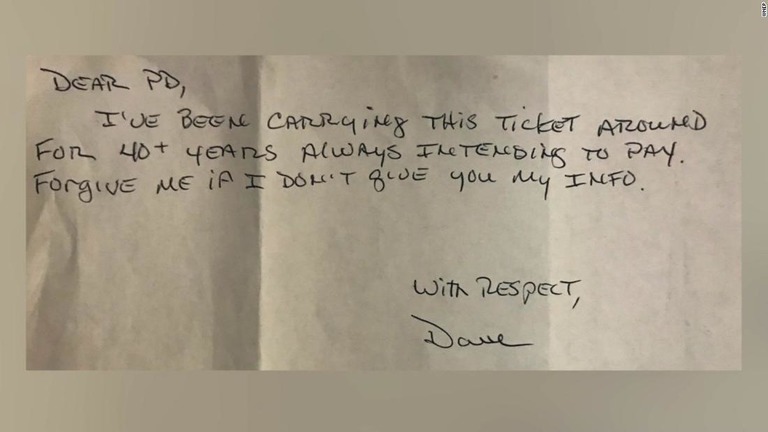 DEAR PD,
I'VE BEEN CARRYING THIS TICKET AROUND
FOR 40+ YEARS ALWAYS INTENDING TO PAY.
FORGIVE ME IF I DON'T GIVE YOU MY INFO.
WITH RESPECT,
Dave
WNEP